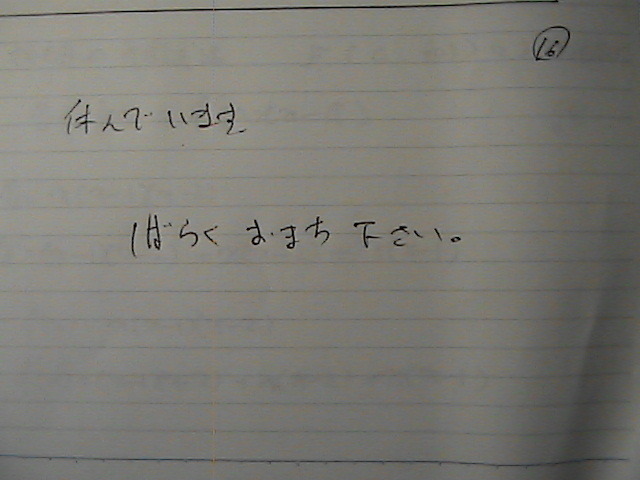 ⑯
休んでいます
しばらくおまち下さい。